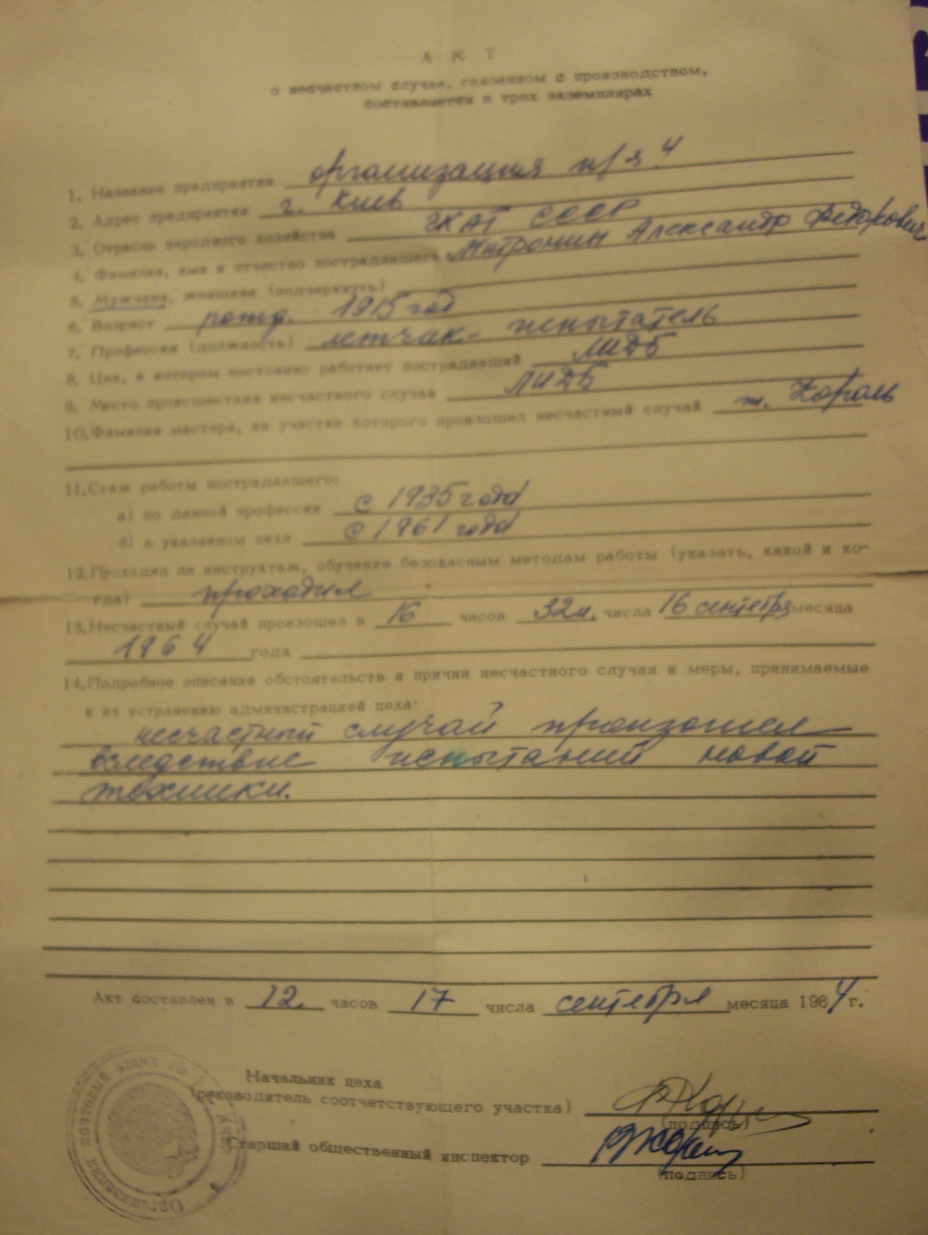 АКТ
о несчастном случае, связанном с производством,
составляется в трех экземплярах
1. Название предприятия организация п/я 4
2. Адрес предприятия г. Киев
3. Отрасль народного хозяйства ГКАТ СССР
4. Фамилия, имя и отчество пострадавшего Митрочин Александр Федорович
5. Мужчина, женщина (подчеркнуть)
6. Возраст рожд. 1915 год
7. Профессия (должность) летчик-испытатель
8. Цех, в котором постоянно работает пострадавший ЛИДБ
9. Место происшествия несчастного случая ЛИДБ
10. Фамилия мастера, на участке которого произошел несчастный случай т. Король
11. Стаж работы пострадавшего:
а) по данной профессии с 1935 года
б) в указанном цехе с 1961 года
12. Проходил ли инструктаж, обучение безопасным методам работы (указать, какой и ко-
гда) проходил
13. Несчастный случай произошел в 16 часов 32м. числа 16 сентября месяца
1964 года
14. Подробное описание обстоятельств и причин несчастного случая и меры, принимаемые
к их устранению администрацией цеха:
несчастный случай произошел
вследствие испытаний новой
техники.
Акт составлен в 12 часов 17 числа сентября месяца 1964 г.
Начальник цеха
(руководитель соответствующего участка)
(подпись)
Старший общественный инспектор
(подпись)
Организация почтовый ящик